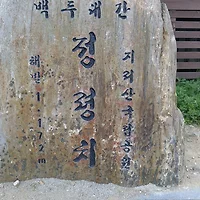 백두대간
정령치
지리산국립공원
해발 1,172m